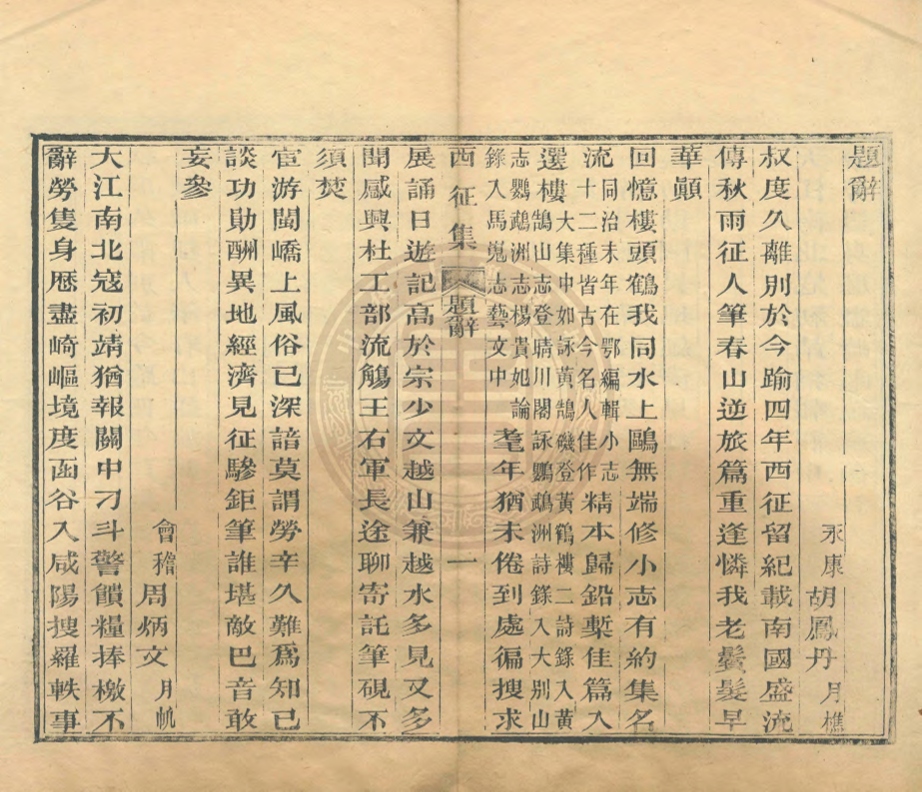 題辭
永康胡鳳丹月樵
叔度久離別於今踰四年西征留紀載南國盛流
傳秋雨征人筆春山逆旅篇重逢憐我老鬢髮早
華顚
回憶樓頭鶴我同水上鷗無端修小志有約集名
流
同治末年在鄂編輯小志
十二種皆古今名人佳作
精本歸鉛槧佳篇入
選樓
大集中如詠黃鵠磯登黃鶴樓二詩錄入黃
鵠山志登晴川閣詠鸚鵡洲詩錄入大別山
志鸚鵡洲志楊貴妃論
錄入馬嵬志藝文中
耄年猶未倦到處徧搜求
西征集
題辭
一
展誦日遊記高於宗少文越山兼越水多見又多
聞感興杜工部流觴王右軍長途聊寄託筆硯不
須焚
宦游閩嶠上風俗已深諳莫謂勞辛久難爲知已
談功勛酬異地經濟見征驂鉅筆誰堪敵巴音敢
妄參
會稽周炳文月帆
大江南北寇初靖猶報關中刁斗警饋糧捧檄不
辭勞隻身歷盡崎嶇境度函谷入咸陽搜羅軼事